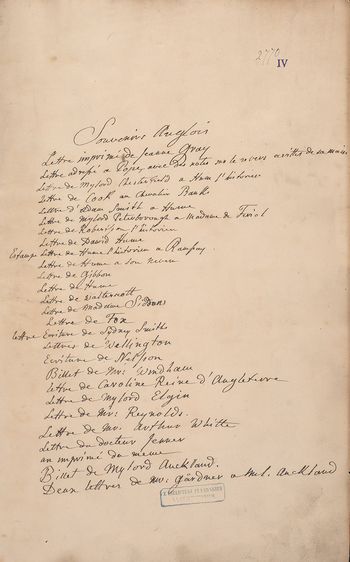 2770
IV
Souvenirs Anglois
Lettre imprimé de Jeanne Gray
Lettre adressé a Pope, avec des notes sur le revers ecrittes de sa main
Lettre de Mylord Chesterfield a Hum l'historien
Lettre de Cook au Chevalier Banks
Lettre d'Adam Smith a Hume
Lettre de Mylord Peterborough a Madame de Feriol
Lettre de Robertson l'historien
Lettre de David Hume
Estampe Lettre de Hume l'historien a Ramsay
Lettre de Hume a son neveu
Lettre de Gibbon
Lettre de Hume
Lettre de Walterscott
Lettre de Madame Siddons
Lettre de Fox
lettre Ecriture de Sydney Smith
Lettres de Wellington
Ecriture de Nelson
Billet de Mr. Windham
lettre de Caroline Reine d'Angleterre
Lettre de Mylord Elgin
Lettre de Mr. Reynolds.
Lettre de Mr. Arthur Whitte
Lettre du docteur Jenner
un imprimé du meme
Billet de Mylord Auckland.
Deux lettres de Mr. Gardner a Mel. Auckland